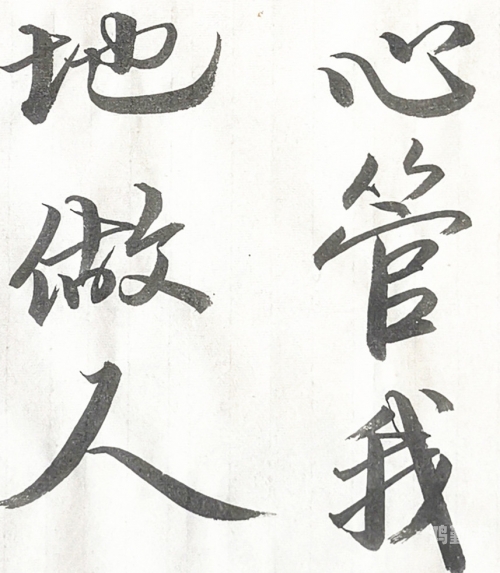 心管我
地做人